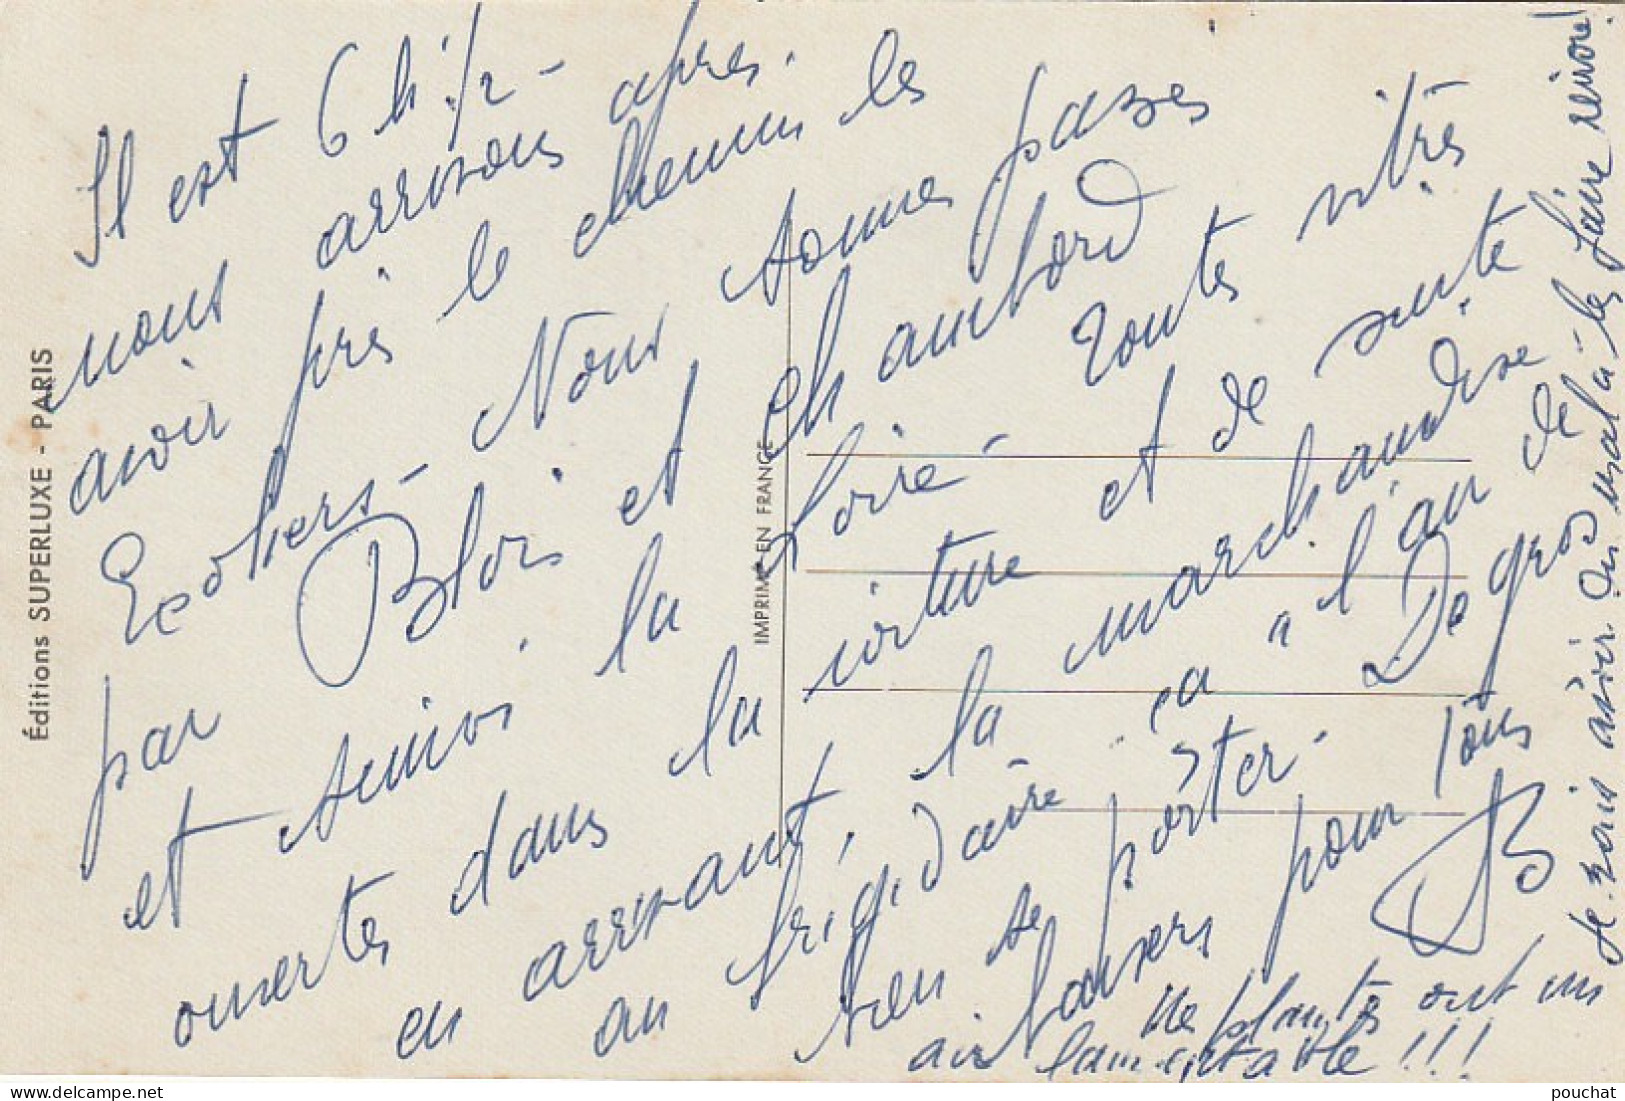 Il est 6 h 1/2 -
nous arrivons après.
avoir pris le chemin les
Ecoliers - Nous sommes passes
par Blois et Chambord
et suivi la Loire - Toutes vitres
ouvertes dans la voiture et de suite
en arrivant, la marchandise
au frigidaire, ca "l'air de
bien se porter - De gros
baisers pour Tous
B
Mes plantes ont un
air lamentable !!!
Je vais avoir du mal à les faire revivre!
Éditions SUPERLUXE - PARIS
IMPRIMÉ EN FRANCE
pouchat